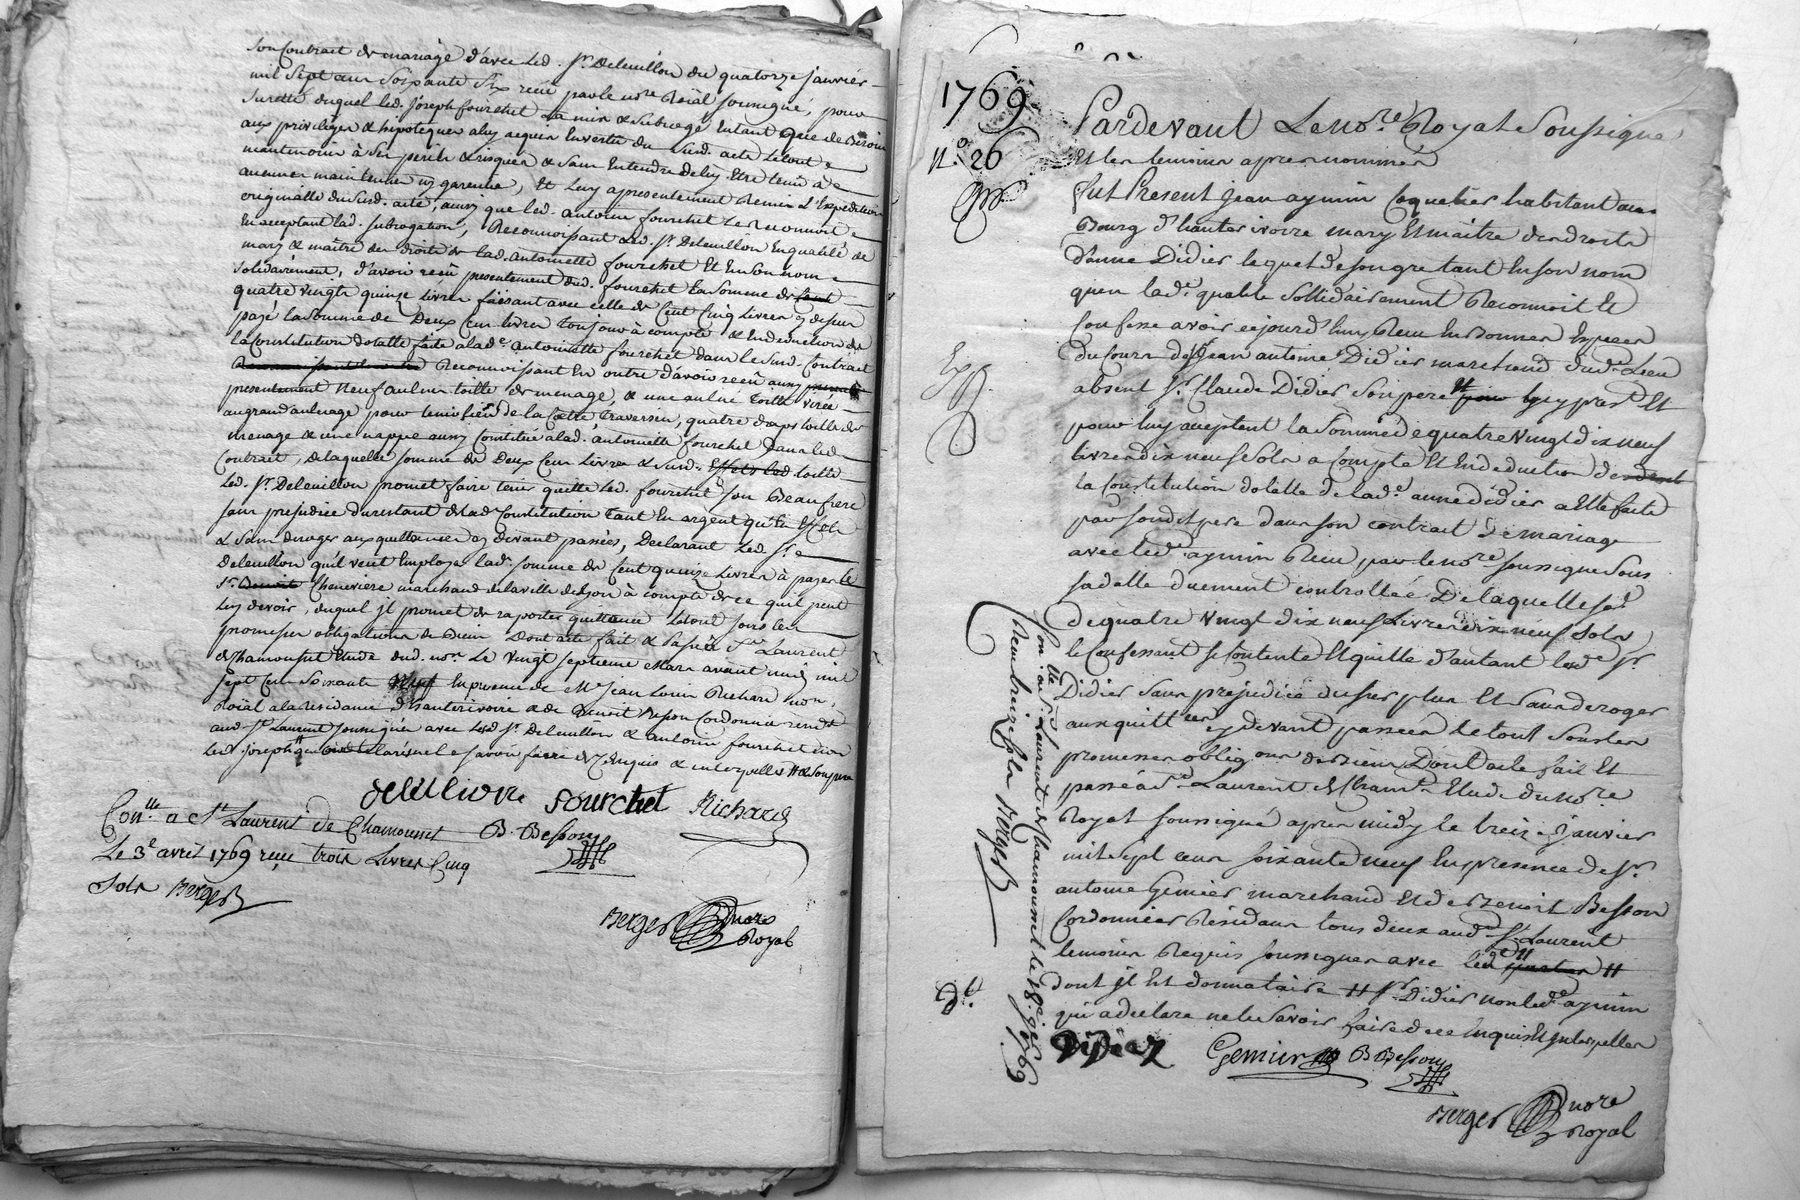 son Contract de mariage d'avec led. Sr. Deleuillon du quatorze janvier
mil sept cen soixante six recu par le nore. Roïal soussigné, pour
surette duquel led. Joseph fourchet La mis & subrogé
aux privileges & hipoteques a luy acquis En vertu du susd. acte Letout
maintenoir à ses perils & risques & sans Entendre de luy Etre tenû à
aucune maintenüe ny garenne, Et luy a presentement Remis L'Expedition
originalle du susd. acte, ainsy que led. antoine fourchet Le Reconnoit
En acceptant lad. subrogation, Reconnoissant led. Sr. Deleuillon En qualité de
mary & maître des droits de lad. antoinette fourchet Et En son nom
solidairement, d'avoir recû presentement dud. fourchet La somme de cent
quatre vingts quinze Livres faisant avec celle de Cent Cinq Livres cy dessus
payé la somme de Deux Cens livres toujours à compte & En deduction de
la Constitution dotalle faite a lade. antoinette fourchet dans le susd. Contract
Reconnoissant En outre d'avoir recû aussy
presentement neuf aulnes toille de menage, & une aulne toille
au grand aulnage pour tenir lieu de la Coëtte traversin, quatre draps toille de
menage & une nappe aussy Constitué a lad. antoinette fourchet dans led.
Contract, de laquelle somme de Deux Cens Livres & susd. Effets lad toille
led. Sr. Deleuillon promet faire tenir quitte led. fourchet son Beaufrere
sans prejudice du restant de lad Constitution tant En argent qu'En Effets
& sans deroger aux quittances cy devant passées, Declarant Led. Sr.
Deleuillon qu'il veut Employer lad. somme de Cent quinze Livres à payer le
Sr. Benoit Cheneviere marchand de la ville de Lyon à compte de ce qu'il peut
luy devoir, duquel jl promet de raporter quittance Letout sous les
promesses obligations de Biens Dont acte fait & passé à St. Laurent
de Chamousset Etude dud. nore. Le vingt septieme Mars avant midy mil
sept cen soixante neuf En presence de Me. Jean Louis Richard nore.
Roïal a la residance d'hauterivoire & de Benoit Besson Cordonnier residt.
aud. St. Laurent soussignés avec led Sr. Deleuillon & antoine fourchet non
led. joseph qui a declaré ne le savoir faire de ce Enquis & interpellé
deleuillon fourchet Richard
Conlle. a St. Laurent de Chamousset B. Besson
Le 3e avril 1769 recu trois Livres Cinq
Sols Berger
Berger nore
Royal
1769
N.° 26
Pardevant Le nore. Royal Soussigné
Et les temoins apres nommés
fut Present jean aymin Coquetier habitant au
Bourg d'hauterivoire mary Et maître des droits
d'anne Didier lequel de son gre tant En son nom
quen lade. qualité sollidairement Reconnoit Et
Confesse avoir cejourd'huy Recu En Bonnes Especes
du Cours de Sr jean antoine Didier marchand dud. Lieu
absent Sr. Claude Didier son pere jcy pnt. Et
pour luy aceptent la somme de quatre vingt dix neuf
livres dix neuf sols a Compte Et En deduction de
la Constitution dotalle de lade. anne didier a Elle faite
par sondit pere dans son contract de mariage
avec lede. aymin Recu par le nore. soussigne sous
sa datte duement controllée De laquelle se.
de quatre vingt dix neuf Livres dix neuf sols
le Confessant se Contente Et quitte d'autant lesde. Srs.
Didier sans prejudice du surplus Et sans deroger
aux quittces. cy devant passées Le tout sous les
promesses obligons de Biens Dont acte fait Et
passé a St. Laurent de Chamt. Etude du nore.
Royal soussigné apres midy le treize janvier
mil sept cens soixante neuf En presence de Sr.
antoine Gemier marchand Et de Benoit Besson
Cordonnier Residans tous deux aud. St. Laurent
temoins Requis soussignes avec led
dont jl Est donnataire Sr. Didier non lede. aymin
qui a declare ne le savoir faire de ce Enquis Et jnterpellé
Didier Gemier B Besson
Berger nore
Royal
Conlle. a St. Laurent de Chamousset le 18e. jer 1769
Recu treize sols Berger